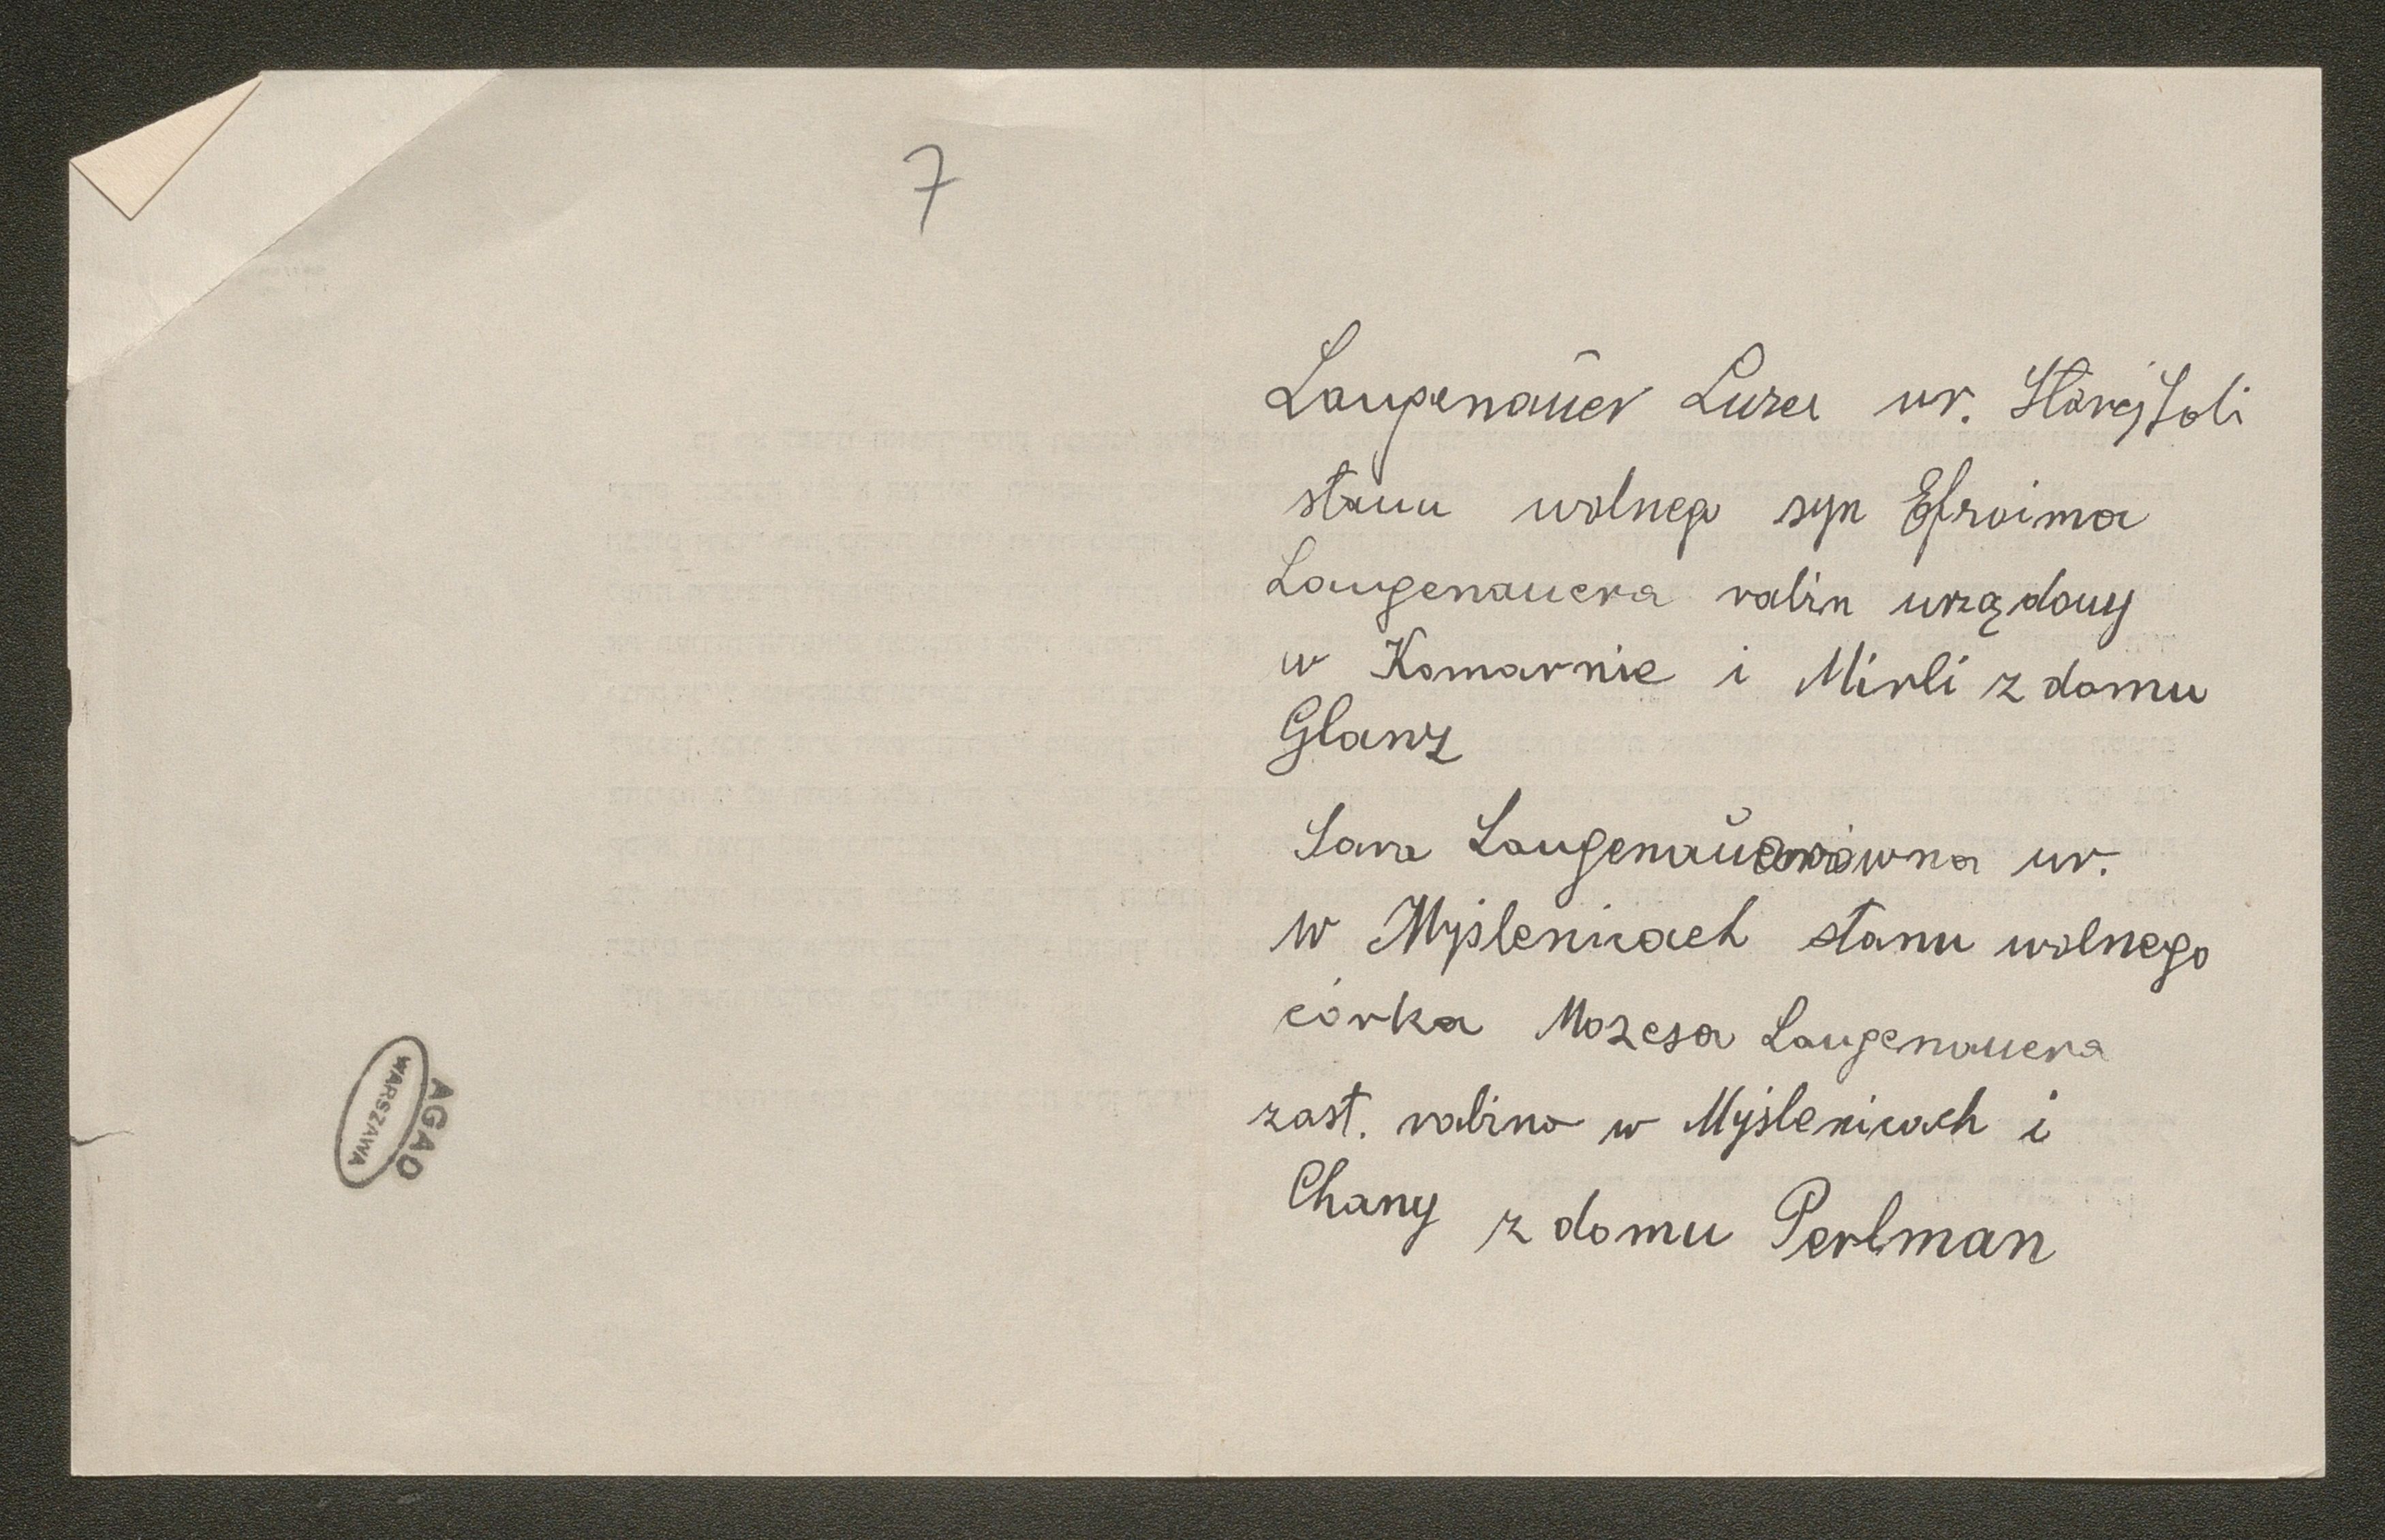 7
Laugenauer Luzer ur. Starej Soli
stanu wolnego syn Efroima
Laugenauera rabin urzędowy
w Komarnie i Mirli z domu
Glanz
Sara Laugenauerówna ur.
w Myślenicach stanu wolnego
córka Mozesa Laugenauera
zast. rabina w Myślenicach i
Chany z domu Perlman
AGAD
WARSZAWA